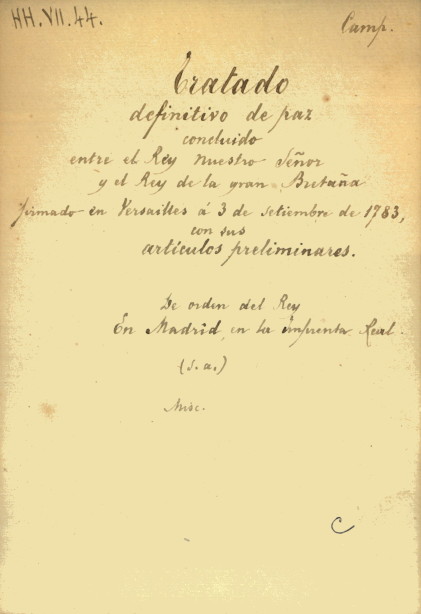 HH.VII.44.
Camp.
Tratado
definitivo de paz
concluido
entre el Rey nuestro Señor
y el Rey de la gran Bretaña
firmado en Versailles á 3 de setiembre de 1783,
con sus
artículos preliminares.
De orden del Rey
En Madrid, en la imprenta Real.
(s.a.)
Misc.
C